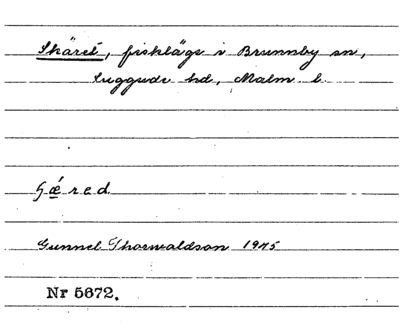 Skäret, fiskläge i Brunnby sn,
Luggude hd, Malm l.
ʃǽred
Gunnel Thorwaldson 1945
Nr 5672.